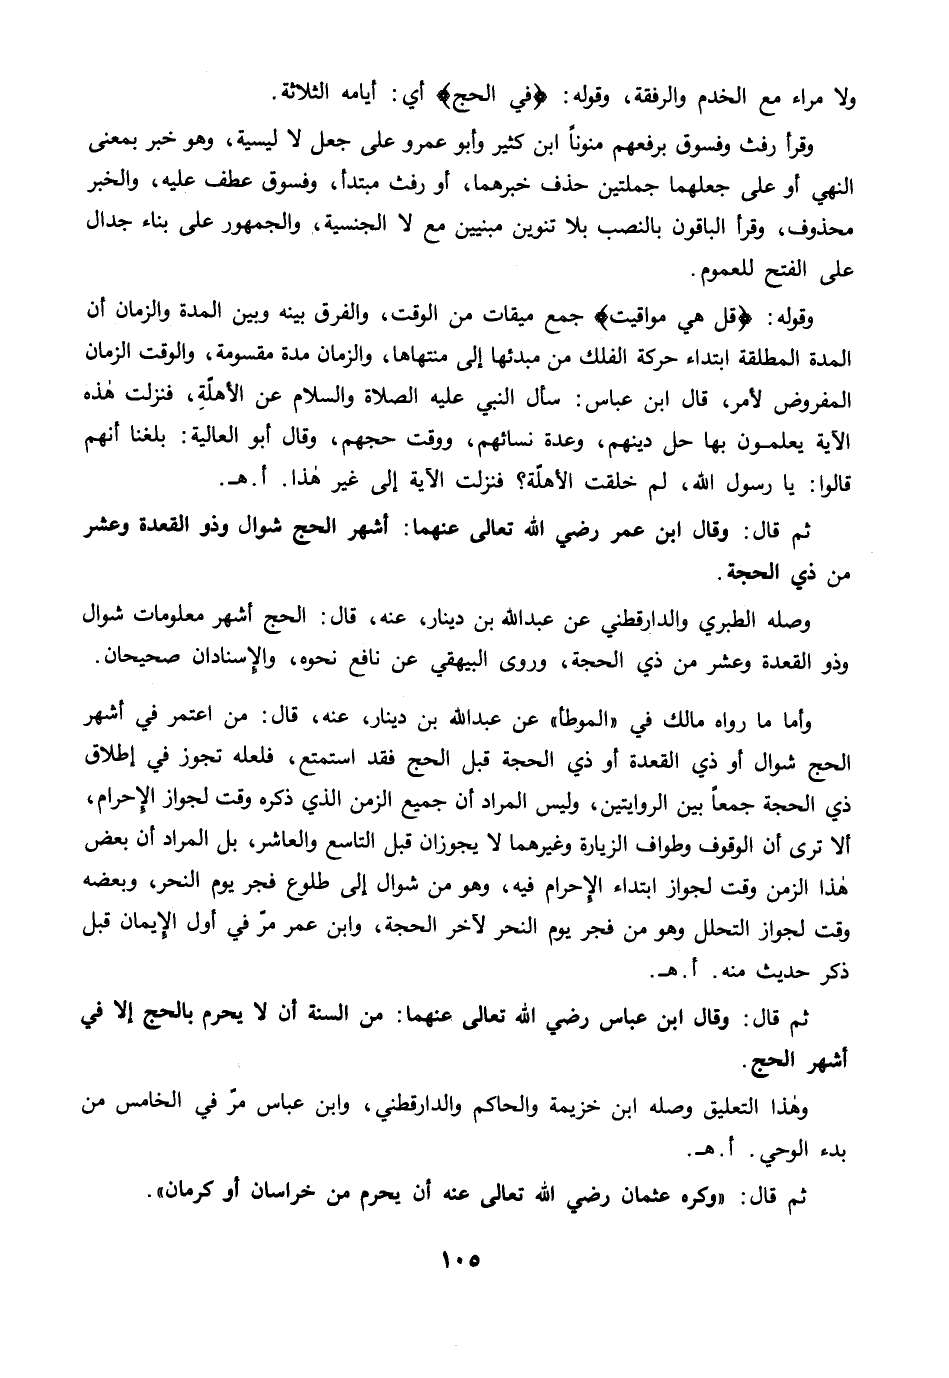 ولا مراء مع الخدم والرفقة، وقوله: ﴿في الحج﴾ أي: أيامه الثلاثة.
وقرأ رفث وفسوق برفعهم منوناً ابن كثير وأبو عمرو على جعل لا ليسية، وهو خبر بمعنى
النهي أو على جعلهما جملتين حذف خبرهما، أو رفث مبتدأ، وفسوق عطف عليه، والخبر
محذوف، وقرأ الباقون بالنصب بلا تنوين مبنيين مع لا الجنسية، والجمهور على بناء جدال
على الفتح للعموم.
وقوله: ﴿قل هي مواقيت﴾ جمع ميقات من الوقت، والفرق بينه وبين المدة والزمان أن
المدة المطلقة ابتداء حركة الفلك من مبدئها إلى منتهاها، والزمان مدة مقسومة، والوقت الزمان
المفروض لأمر، قال ابن عباس: سأل النبي عليه الصلاة والسلام عن الأهلّةِ، فنزلت هٰذه
الآية يعلمون بها حل دينهم، وعدة نسائهم، ووقت حجهم، وقال أبو العالية: بلغنا أنهم
قالوا: يا رسول الله، لم خلقت الأهلّة؟ فنزلت الآية إلى غير هٰذا. أ.هـ.
ثم قال: وقال ابن عمر رضي الله تعالى عنهما: أشهر الحج شوال وذو القعدة وعشر
من ذي الحجة.
وصله الطبري والدارقطني عن عبدالله بن دينار، عنه، قال: الحج أشهر معلومات شوال
وذو القعدة وعشر من ذي الحجة، وروى البيهقي عن نافع نحوه، والإسنادان صحيحان.
وأما ما رواه مالك في «الموطأ» عن عبدالله بن دينار، عنه، قال: من اعتمر في أشهر
الحج شوال أو ذي القعدة أو ذي الحجة قبل الحج فقد استمتع، فلعله تجوز في إطلاق
ذي الحجة جمعاً بين الروايتين، وليس المراد أن جميع الزمن الذي ذكره وقت لجواز الإحرام،
ألا ترى أن الوقوف وطواف الزيارة وغيرهما لا يجوزان قبل التاسع والعاشر، بل المراد أن بعض
هٰذا الزمن وقت لجواز ابتداء الإحرام فيه، وهو من شوال إلى طلوع فجر يوم النحر، وبعضه
وقت لجواز التحلل وهو من فجر يوم النحر لآخر الحجة، وابن عمر مرّ في أول الإيمان قبل
ذكر حديث منه. أ.هـ.
ثم قال: وقال ابن عباس رضي الله تعالى عنهما: من السنة أن لا يحرم بالحج إلا في
أشهر الحج.
وهٰذا التعليق وصله ابن خزيمة والحاكم والدارقطني، وابن عباس مرّ في الخامس من
بدء الوحي. أ.هـ.
ثم قال: «وكره عثمان رضي الله تعالى عنه أن يحرم من خراسان أو كرمان».
١٠٥